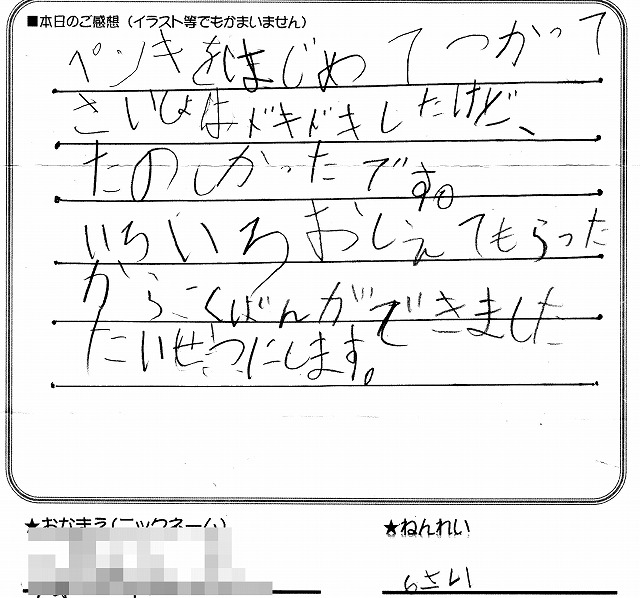 ■本日のご感想（イラスト等でもかまいません）
ペンキをはじめてつかって
さいしょはドキドキしたけど、
たのしかったです。
いろいろおしえてもらった
からこくばんができました
たいせつにします。
★おなまえ(ニックネーム)
★ねんれい
6さい